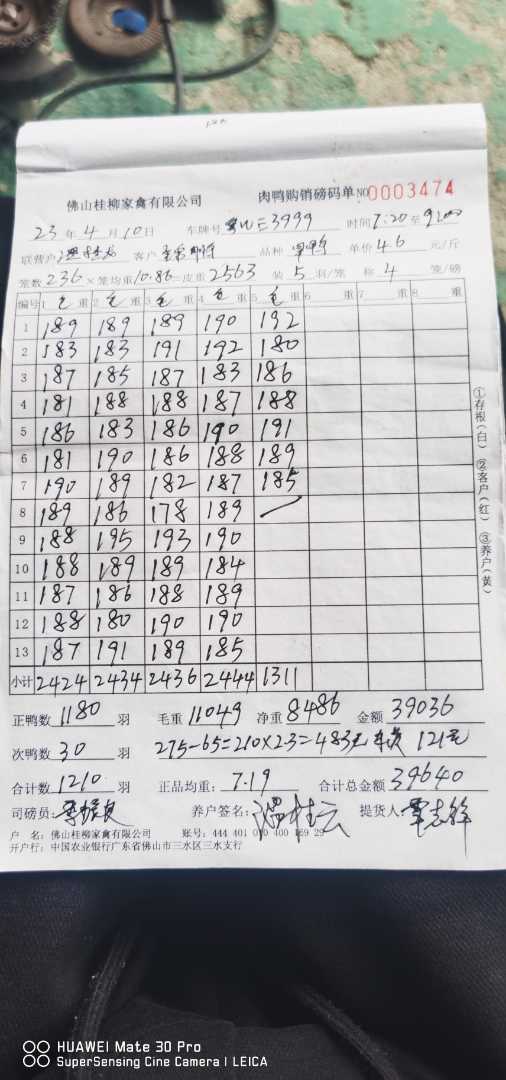 佛山桂柳家禽有限公司 肉鸭购销磅码单 NO 0003474
23 年 4 月 10 日 车牌号 E3999 时间 7:20 至 9:00
联营户 客户 品种 单价 4.6 元/斤
笼数 236 × 笼均重 10.86 = 皮重 2563 装 5 羽/笼 称 4 笼/磅
编号 1 毛 重 2 毛 重 3 毛 重 4 毛 重 5 毛 重 6 重 7 重 8 重
1 189 189 189 190 192
2 183 183 191 192 180
3 187 185 187 183 186
4 181 188 188 187 188
5 186 183 186 190 191
6 181 190 186 188 189
7 190 189 182 187 185
8 189 186 178 189
9 188 195 193 190
10 188 189 189 184
11 187 186 188 189
12 188 180 190 190
13 187 191 189 185
小计 2424 2434 2436 2444 1311
正鸭数 1180 羽 毛重 11049 净重 8486 金额 39036
次鸭数 30 羽 275-65=210×2.3=483元 121元
合计数 1210 羽 正品均重: 7.19 合计总金额 39640
司磅员: 养户签名: 温桂云 提货人 覃志锋
户 名: 佛山桂柳家禽有限公司 账号: 444 401 0 0 400 1 9 29
开户行: 中国农业银行广东省佛山市三水区三水支行
①存根(白) ②客户(红) ③养户(黄)
HUAWEI Mate 30 Pro
SuperSensing Cine Camera | LEICA